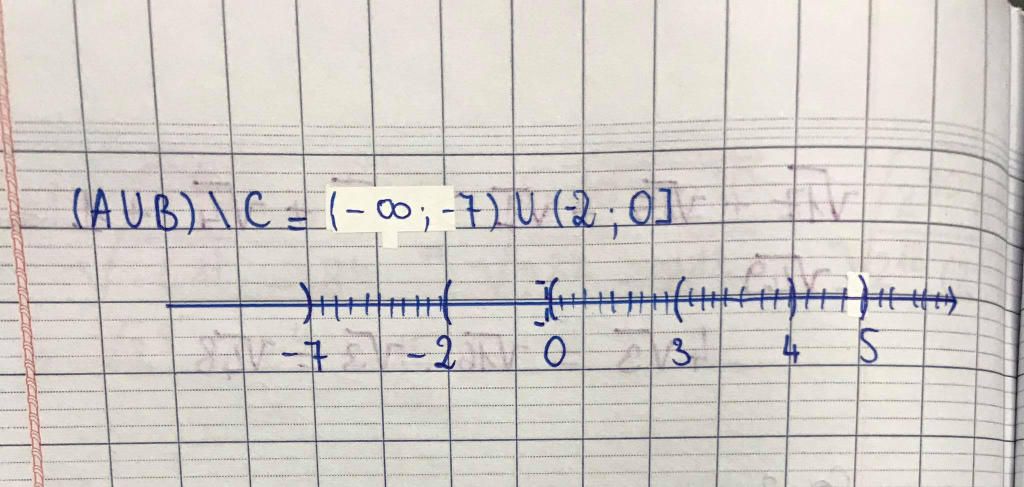 (A∪B)\C = (-∞; -7) ∪ (-2; 0]
-7 -2 0 3 4 5